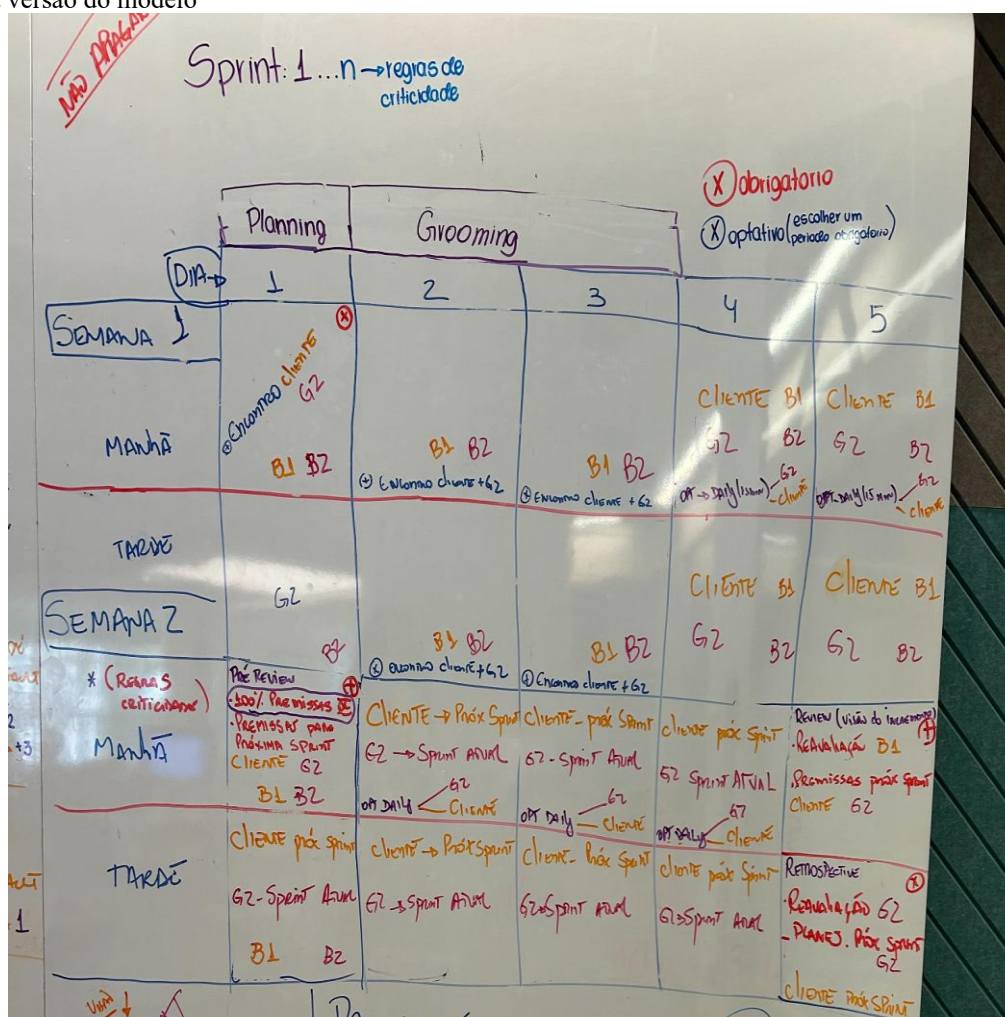 versão do modelo
NÃO APAGAR
Sprint: 1...n → regras de
criticidade
(X) obrigatorio
(X) optativo (escolher um
periodo obrigatorio)
Planning
Grooming
DIA →
1
2
3
4
5
SEMANA 1
MANHÃ
Encontro cliente
G2
B1 B2
B1 B2
Encontro cliente + G2
B1 B2
Encontro cliente + G2
CLIENTE B1
G2 B2
OPT → DAILY (15min)
G2
Cliente
CLIENTE B1
G2 B2
OPT-DAILY (15 min)
G2
cliente
TARDE
G2
B1 B2
(X) encontro cliente + G2
B1 B2
Encontro cliente + G2
CLIENTE B1
G2 B2
CLIENTE B1
G2 B2
SEMANA 2
* (REGRAS
CRITICIDADE)
MANHÃ
PRÉ REVIEW
100% PREMISSAS
· PREMISSAS PARA
PRÓXIMA SPRINT
CLIENTE G2
B1 B2
CLIENTE → PRÓX Sprint
G2 → Sprint ATUAL
OPT DAILY
G2
CLIENTE
Cliente - próx Sprint
G2 - Sprint Atual
OPT DAILY
G2
Cliente
cliente próx Sprint
G2 Sprint ATUAL
OPT DAILY
G2
CLIENTE
REVIEW (visão do incremento)
· REAVALIAÇÃO B1
· PREMISSAS próx Sprint
CLIENTE G2
TARDE
CLIENTE próx sprint
G2 - Sprint Atual
B1 B2
cliente → Próx Sprint
G2 → Sprint ATUAL
Cliente - Próx Sprint
G2 → Sprint ATUAL
cliente próx Sprint
G2 → Sprint ATUAL
RETROSPECTIVE
(X)
· REAVALIAÇÃO G2
- PLANEJ. PRÓX SPRINT
G2
CLIENTE PRÓX SPRINT